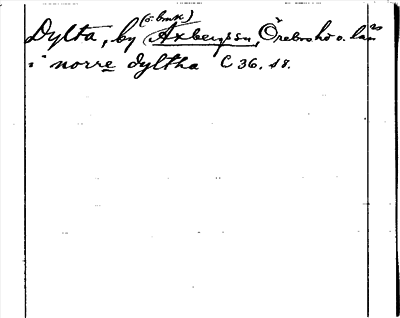 (o. bruk)
Dylta, by Axbergs sn, Örebro hd o. län
i norre dyltha C 36. s 8.